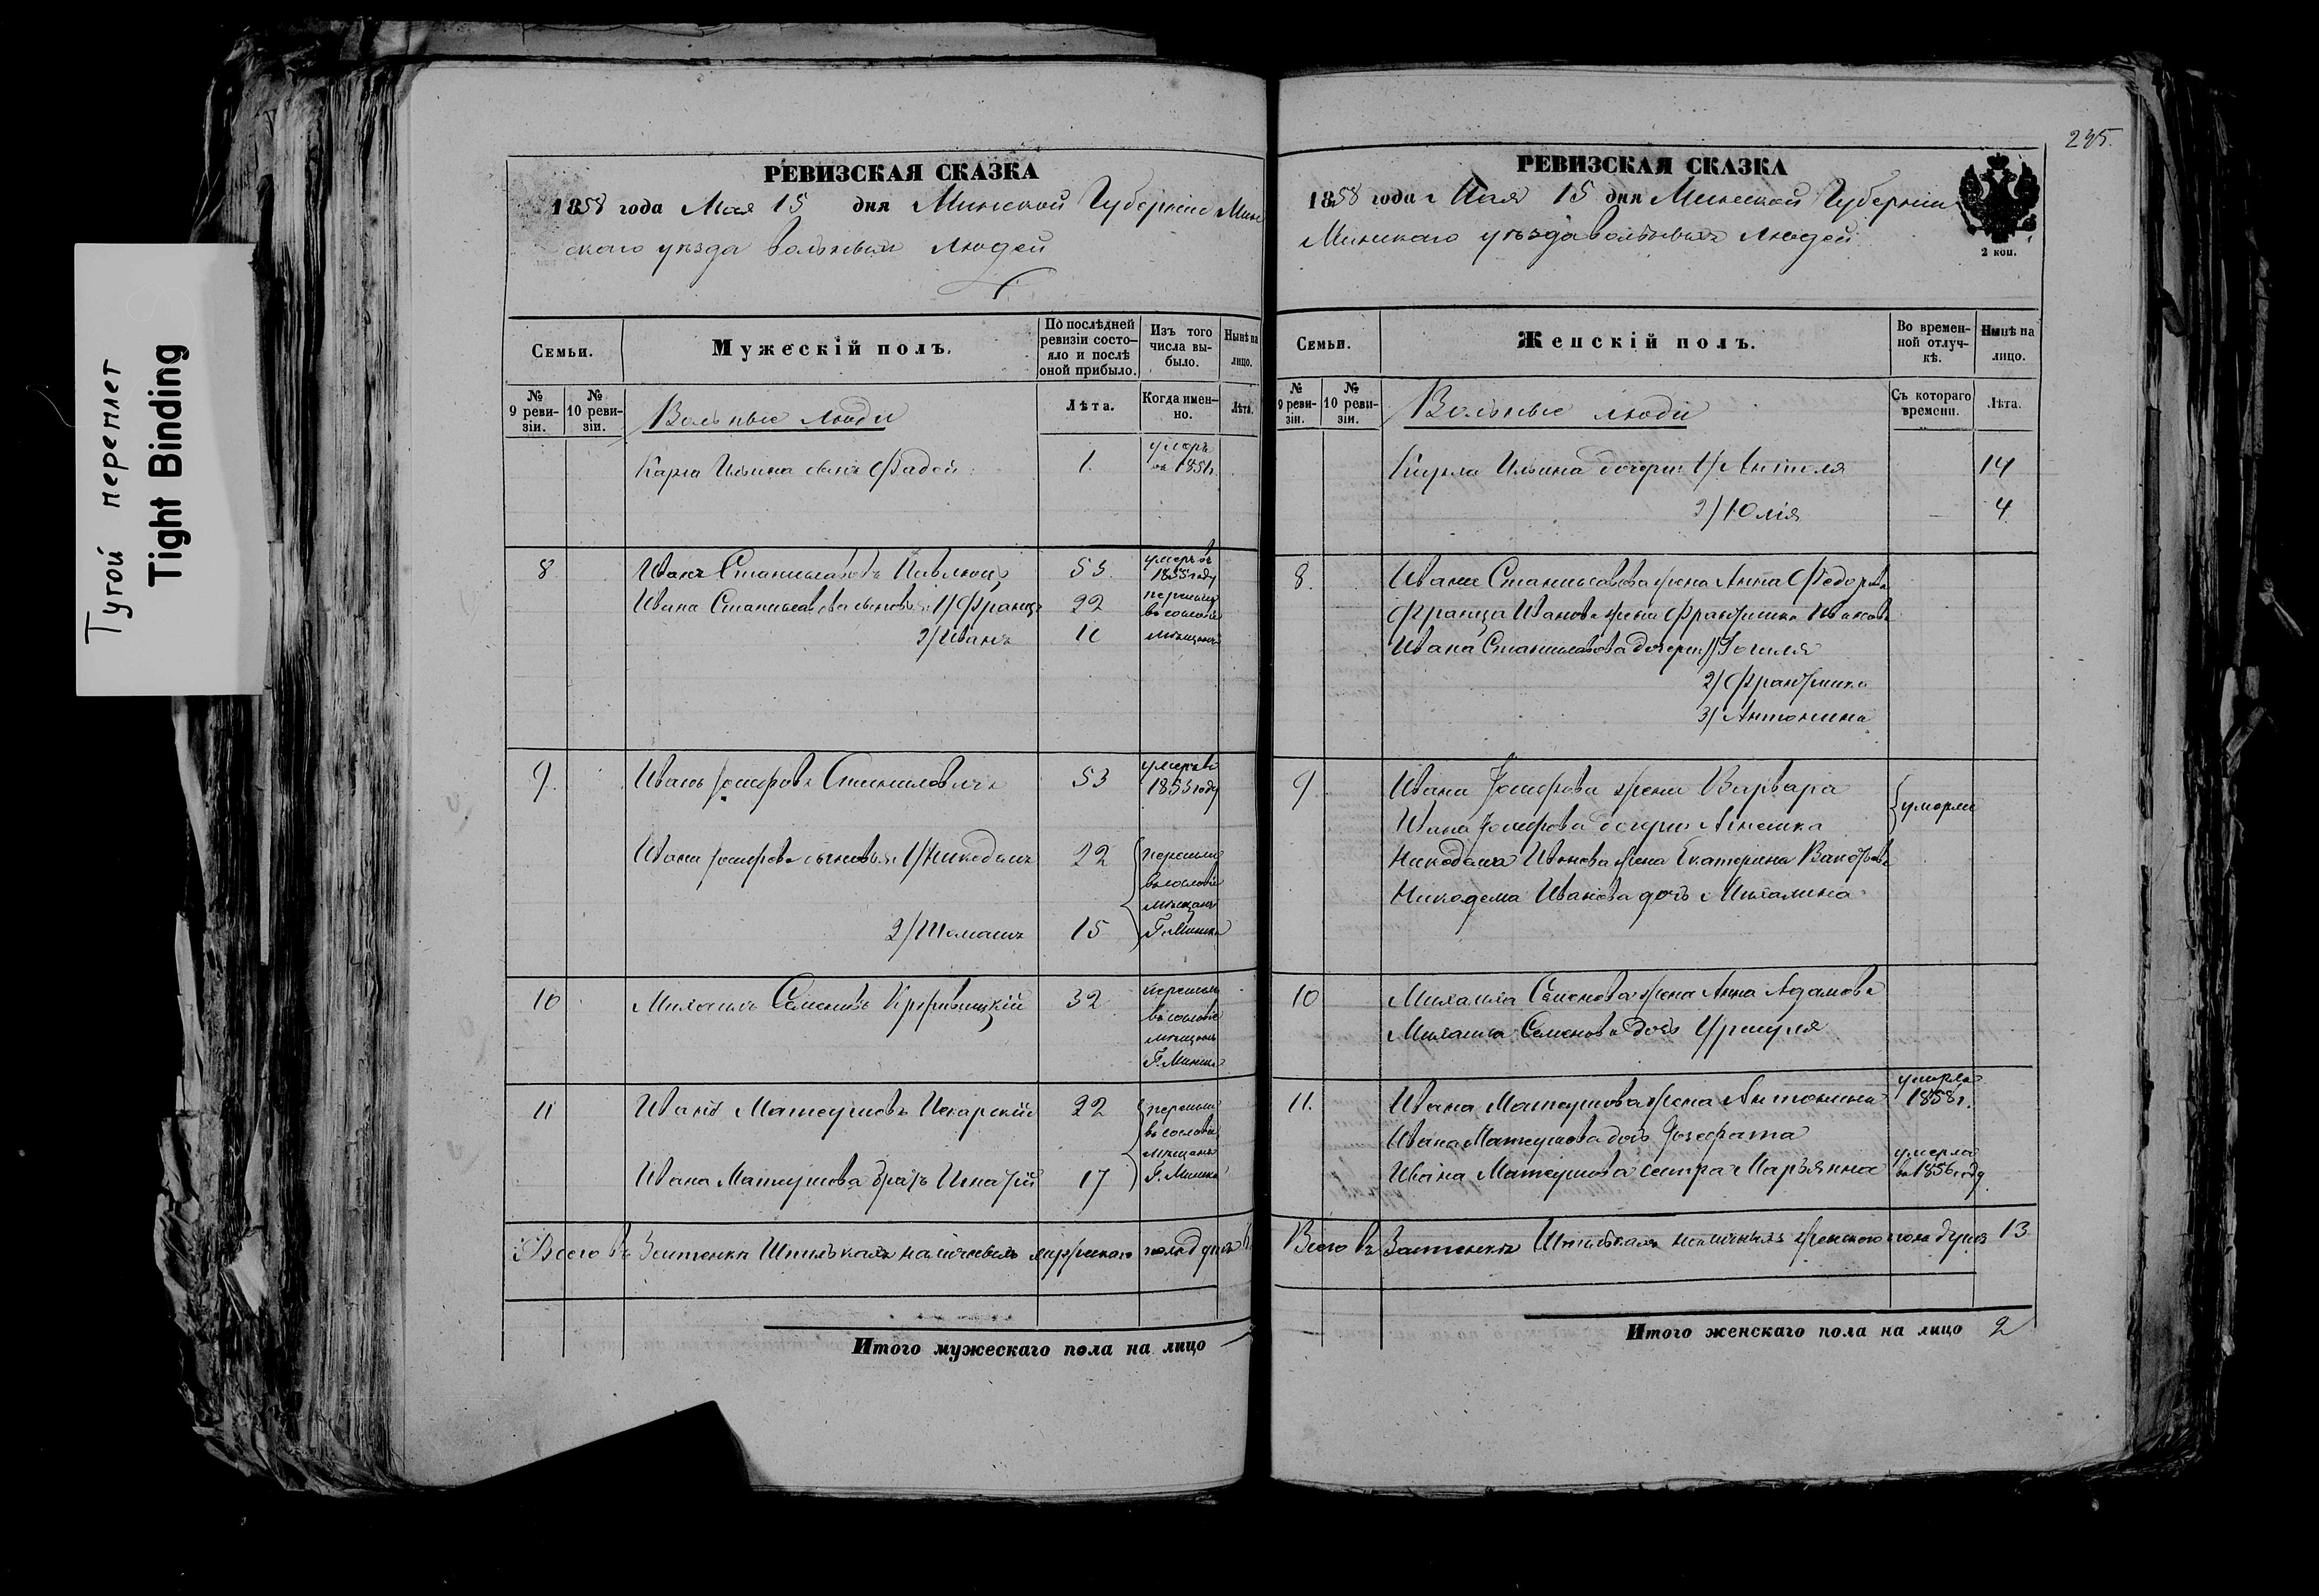 Тугой переплет
Tight Binding
РЕВИЗСКАЯ СКАЗКА
1858 года Мая 15 дня Минской Губерніи Мин
скаго уѣзда вольныхъ людей
Семьи.
Мужескій полъ.
По послѣдней ревизіи состо-
яло и послѣ
оной прибыло.
Изъ того
числа вы-
было.
Нынѣ на
лицо.
№
9 реви-
зіи.
№
10 реви-
зіи.
Вольные люди
Лѣта.
Когда имен-
но.
Лѣта.
Карла Ильина сынъ Фадей 1. умеръ
въ 1851г.
8 Иванъ Станиславовъ 53 умеръ въ
1855 году
Ивана Станиславова сыновья: 1/ Францъ 22 перешли
въ сословіе
2/ Иванъ 11 мѣщанъ
9. Иванъ Іосифовъ 53 умеръ въ
1853 году
Ивана Іосифова сыновья 1/ Никодимъ 22 перешли
въ сословіе
мѣщанъ
2/ Томашъ 15 Г. Минска
10 Михаилъ Семеновъ 32 перешли
въ сословіе
мѣщанъ
Г. Минска
11 Иванъ Матеушовъ Пекарскій 22 перешли
въ сословіе
мѣщанъ
Ивана Матеушова братъ Игнатій 17 Г. Минска
Всего въ Застенкѣ наличныхъ мужескаго пола душъ
Итого мужескаго пола на лицо
РЕВИЗСКАЯ СКАЗКА
1858 года Мая 15 дня Минской Губерніи
Минскаго уѣзда вольныхъ людей
2 коп.
Семьи.
Женскій полъ.
Во времен-
ной отлуч-
кѣ.
Нынѣ на
лицо.
№
9 реви-
зіи.
№
10 реви-
зіи.
Вольные люди
Съ котораго
времени.
Лѣта.
Карла Ильина дочери 1/ Антеля 14
2/ Юлія 4
8. Ивана Станиславова жена Анна Федорова
Франца Иванова жена Франтишка Иванова
Ивана Станиславова дочери 1/
2/ Франтишка
3/ Антонина
9 Ивана Іосифова жена Варвара умерли
Ивана Іосифова дочери Агнешка
Никодима Иванова жена Екатерина
Никодема Иванова дочь Михалина
10 Михаила Семенова жена Анна Адамова
Михаила Семенова дочь Уршуля
11. Ивана Матеушова жена Антонина умерла
1858 г.
Ивана Матеушова дочь Іозефата
Ивана Матеушова сестра Марьянна умерла
въ 1856 году
Всего въ Застенкѣ наличныхъ женскаго пола душъ 13
Итого женскаго пола на лицо 2